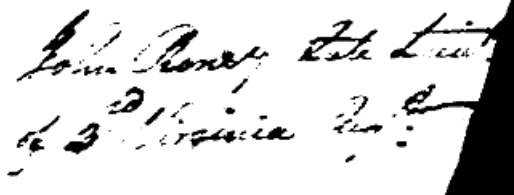 John Roney late Lieut
of 3d Virginia Regt